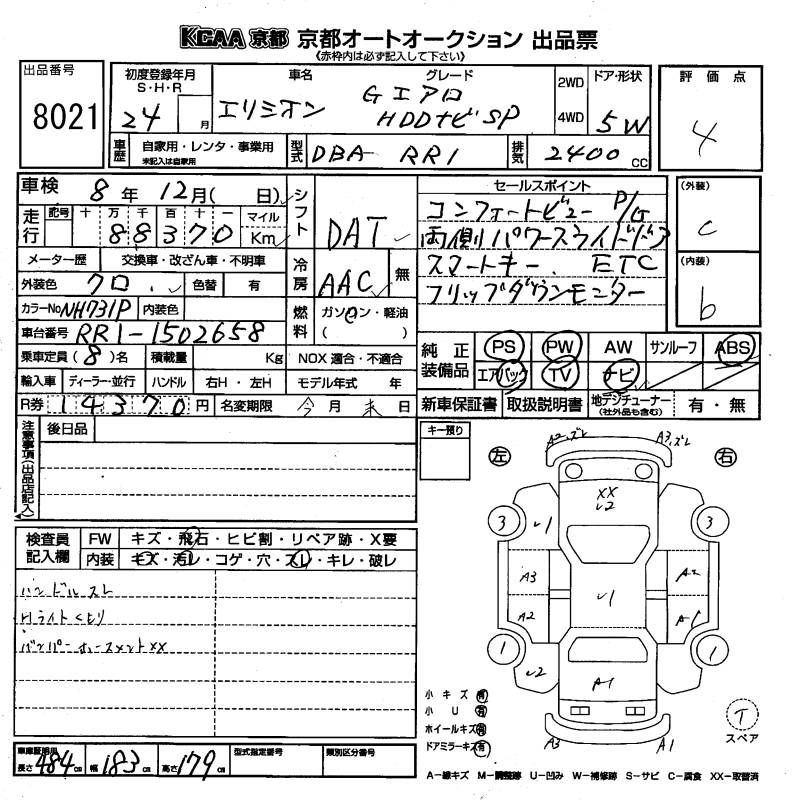 KCAA 京都 京都オートオークション 出品票
《赤枠内は必ず記入して下さい》
出品番号
8021
初度登録年月
S・H・R
24 月
車名
エリシオン
グレード
Gエアロ
HDDナビSP
2WD
4WD
ドア・形状
5W
評価点
4
車歴
自家用・レンタ・事業用
未記入は自家用
型式
DBA- RR1
排気
2400 cc
車検 8年 12月( 日)
走行
記号 十 万 千 百 十 一
88370
マイル
Km
シフト
DAT
セールスポイント
コンフォートビュー P/G
両側パワースライドドア
スマートキー. ETC
フリップダウンモニター
(外装)
C
(内装)
b
メーター歴 交換車・改ざん車・不明車
冷房
AAC
無
外装色 クロ. 色替 有
カラーNo NH731P 内装色
燃料
ガソリン・軽油
( )
車台番号 RR1-1502658
乗車定員 (8)名 積載量 Kg NOX 適合・不適合
輸入車 ディーラー・並行 ハンドル 右H・左H モデル年式 年
純正装備品
PS PW AW サンルーフ ABS
エアバック TV ナビ
R券 14370円 名変期限 今月末日
新車保証書 取扱説明書 地デジチューナー(社外品も含む) 有・無
注意事項(出品店記入)
後日品
キー預り
左 右
A2,ズレ A3,ズレ
XX
レ2
3 レ1 3
A3 A2
レ1
A2 A1
1 レ2 1
A1
A3 A1
検査員記入欄
FW キズ・飛石・ヒビ割・リペア跡・X要
内装 キズ・汚レ・コゲ・穴・スレ・キレ・破レ
ハンドルスレ
Hライトくもり
バンパーホースメントXX
小キズ 有
小U 有
ホイールキズ 有
ドアミラーキズ 有
T
スペア
車庫証明用
長さ 484cm 幅 183cm 高さ 179cm
型式指定番号
類別区分番号
A-線キズ M-調整跡 U-凹み W-補修跡 S-サビ C-腐食 XX-取替済